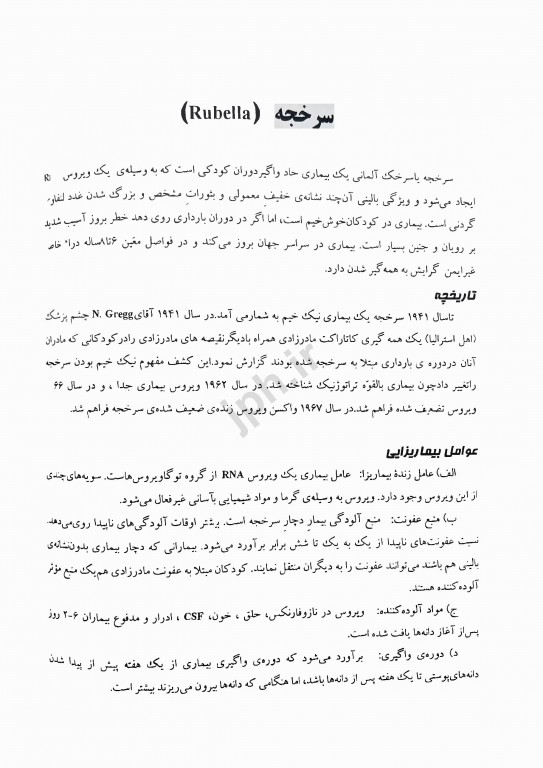 سرخجه (Rubella)
سرخجه یاسرخک آلمانی یک بیماری حاد واگیردوران کودکی است که به وسیله‌ی یک ویروس
ایجاد می‌شود و ویژگی بالینی آن‌چند نشانه‌ی خفیف معمولی و بثورات مشخص و بزرگ شدن غدد لنفاو
گردنی است. بیماری در کودکان‌خوش‌خیم است، اما اگر در دوران بارداری روی دهد خطر بروز آسیب شدید
بر رویان و جنین بسیار است. بیماری در سراسر جهان بروز می‌کند و در فواصل معین ۶تا۸ساله
غیرایمن گرایش به همه‌گیر شدن دارد.
تاریخچه
تاسال ۱۹۴۱ سرخجه یک بیماری نیک خیم به شمارمی آمد.در سال ۱۹۴۱ آقایN. Gregg چشم پزشک
(اهل استرالیا) یک همه گیری کاتاراکت مادرزادی همراه بادیگرنقیصه های مادرزادی رادرکودکانی که مادران
آنان دردوره ی بارداری مبتلا به سرخجه شده بودند گزارش نمود.این کشف مفهوم نیک خیم بودن سرخجه
راتغییر دادچون بیماری بالقوّه تراتوژنیک شناخته شد. در سال ۱۹۶۲ ویروس بیماری جدا ، و در سال ۶۶
ویروس تضعیف شده فراهم شد.در سال ۱۹۶۷ واکسن ویروس زنده‌ی ضعیف شده‌ی سرخجه فراهم شد.
عوامل بیماریزایی
الف) عامل زندهٔ بیماریزا: عامل بیماری یک ویروس RNA از گروه توگاویروس‌هاست. سویه‌های‌چندی
از این ویروس وجود دارد. ویروس به وسیله‌ی گرما و مواد شیمیایی بآسانی غیرفعال می‌شود.
ب) منبع عفونت: منبع آلودگی بیمارِ دچارِ سرخجه است. بیشتر اوقات آلودگی‌های ناپیدا روی‌می‌دهد.
نسبت عفونت‌های ناپیدا از یک به یک تا شش برابر برآورد می‌شود. بیمارانی که دچار بیماری بدون‌نشانه‌ی
بالینی هم باشند می‌توانند عفونت را به دیگران منتقل نمایند. کودکان مبتلا به عفونت مادرزادی هم‌یک منبع مؤثر
آلوده‌کننده هستند.
ج) مواد آلوده‌کننده: ویروس در نازوفارنکس، حلق ، خون، CSF ، ادرار و مدفوع بیماران ۶-۲ روز
پس‌از آغاز دانه‌ها یافت شده است.
د) دوره‌ی واگیری: برآورد می‌شود که دوره‌ی واگیری بیماری از یک هفته پیش از پیدا شدن
دانه‌های‌پوستی تا یک هفته پس از دانه‌ها باشد، اما هنگامی که دانه‌ها بیرون می‌ریزند بیشتر است.
jph.ir